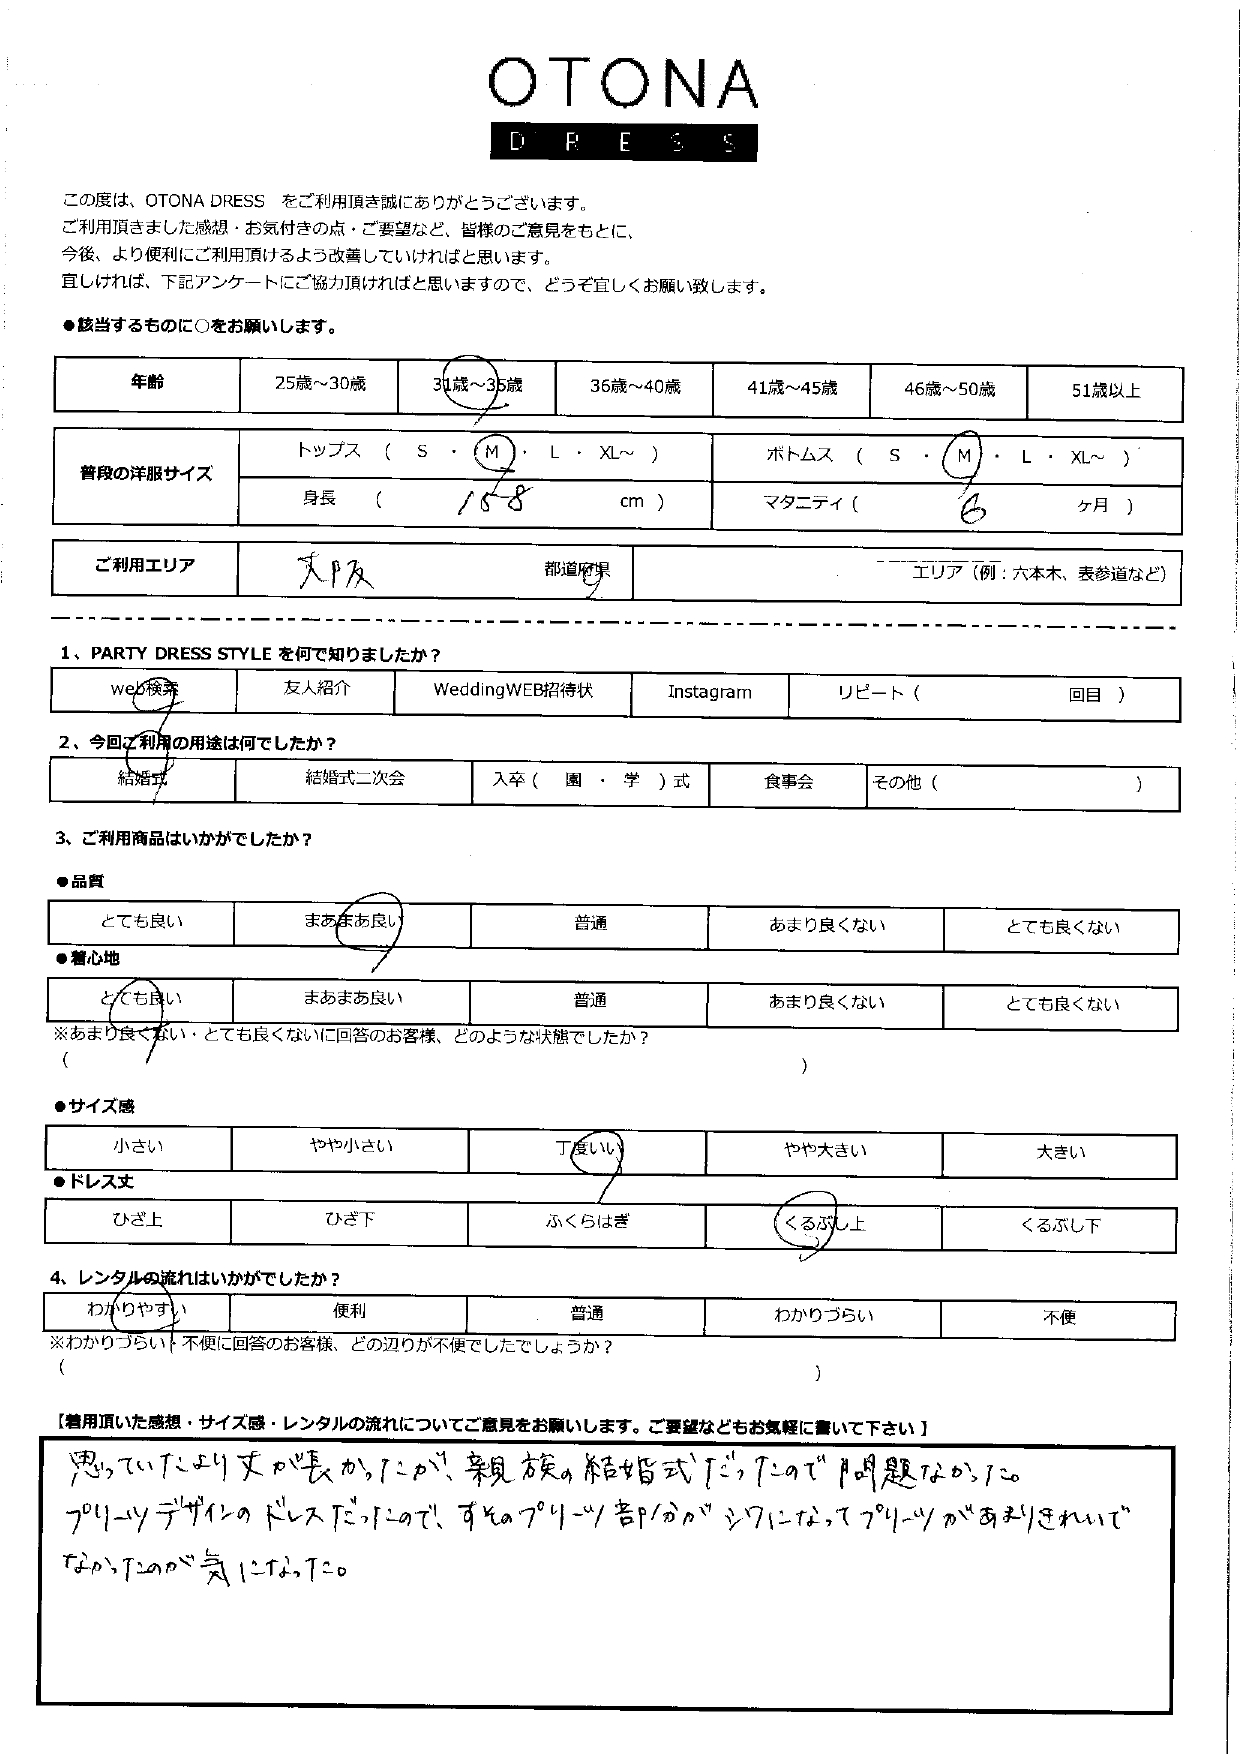 OTONA
DRESS
この度は、OTONA DRESS をご利用頂き誠にありがとうございます。
ご利用頂きました感想・お気付きの点・ご要望など、皆様のご意見をもとに、
今後、より便利にご利用頂けるよう改善していければと思います。
宜しければ、下記アンケートにご協力頂ければと思いますので、どうぞ宜しくお願い致します。
●該当するものに○をお願いします。
年齢 25歳～30歳 31歳～35歳 36歳～40歳 41歳～45歳 46歳～50歳 51歳以上
普段の洋服サイズ トップス ( S ・ M ・ L ・ XL～ ) ボトムス ( S ・ M ・ L ・ XL～ )
身長 ( 158 cm ) マタニティ ( 6 ヶ月 )
ご利用エリア 大阪 都道府県 エリア（例：六本木、表参道など）
1、PARTY DRESS STYLE を何で知りましたか？
web検索 友人紹介 WeddingWEB招待状 Instagram リピート ( 回目 )
2、今回ご利用の用途は何でしたか？
結婚式 結婚式二次会 入卒 ( 園 ・ 学 ) 式 食事会 その他 ( )
3、ご利用商品はいかがでしたか？
●品質
とても良い まあまあ良い 普通 あまり良くない とても良くない
●着心地
とても良い まあまあ良い 普通 あまり良くない とても良くない
※あまり良くない・とても良くないに回答のお客様、どのような状態でしたか？
( )
●サイズ感
小さい やや小さい 丁度いい やや大きい 大きい
●ドレス丈
ひざ上 ひざ下 ふくらはぎ くるぶし上 くるぶし下
4、レンタルの流れはいかがでしたか？
わかりやすい 便利 普通 わかりづらい 不便
※わかりづらい・不便に回答のお客様、どの辺りが不便でしたでしょうか？
( )
【着用頂いた感想・サイズ感・レンタルの流れについてご意見をお願いします。ご要望などもお気軽に書いて下さい】
思っていたより丈が長かったが、親族の結婚式だったので問題なかった。
プリーツデザインのドレスだったので、すそのプリーツ部分がシワになってプリーツがあまりきれいで
なかったのが気になった。